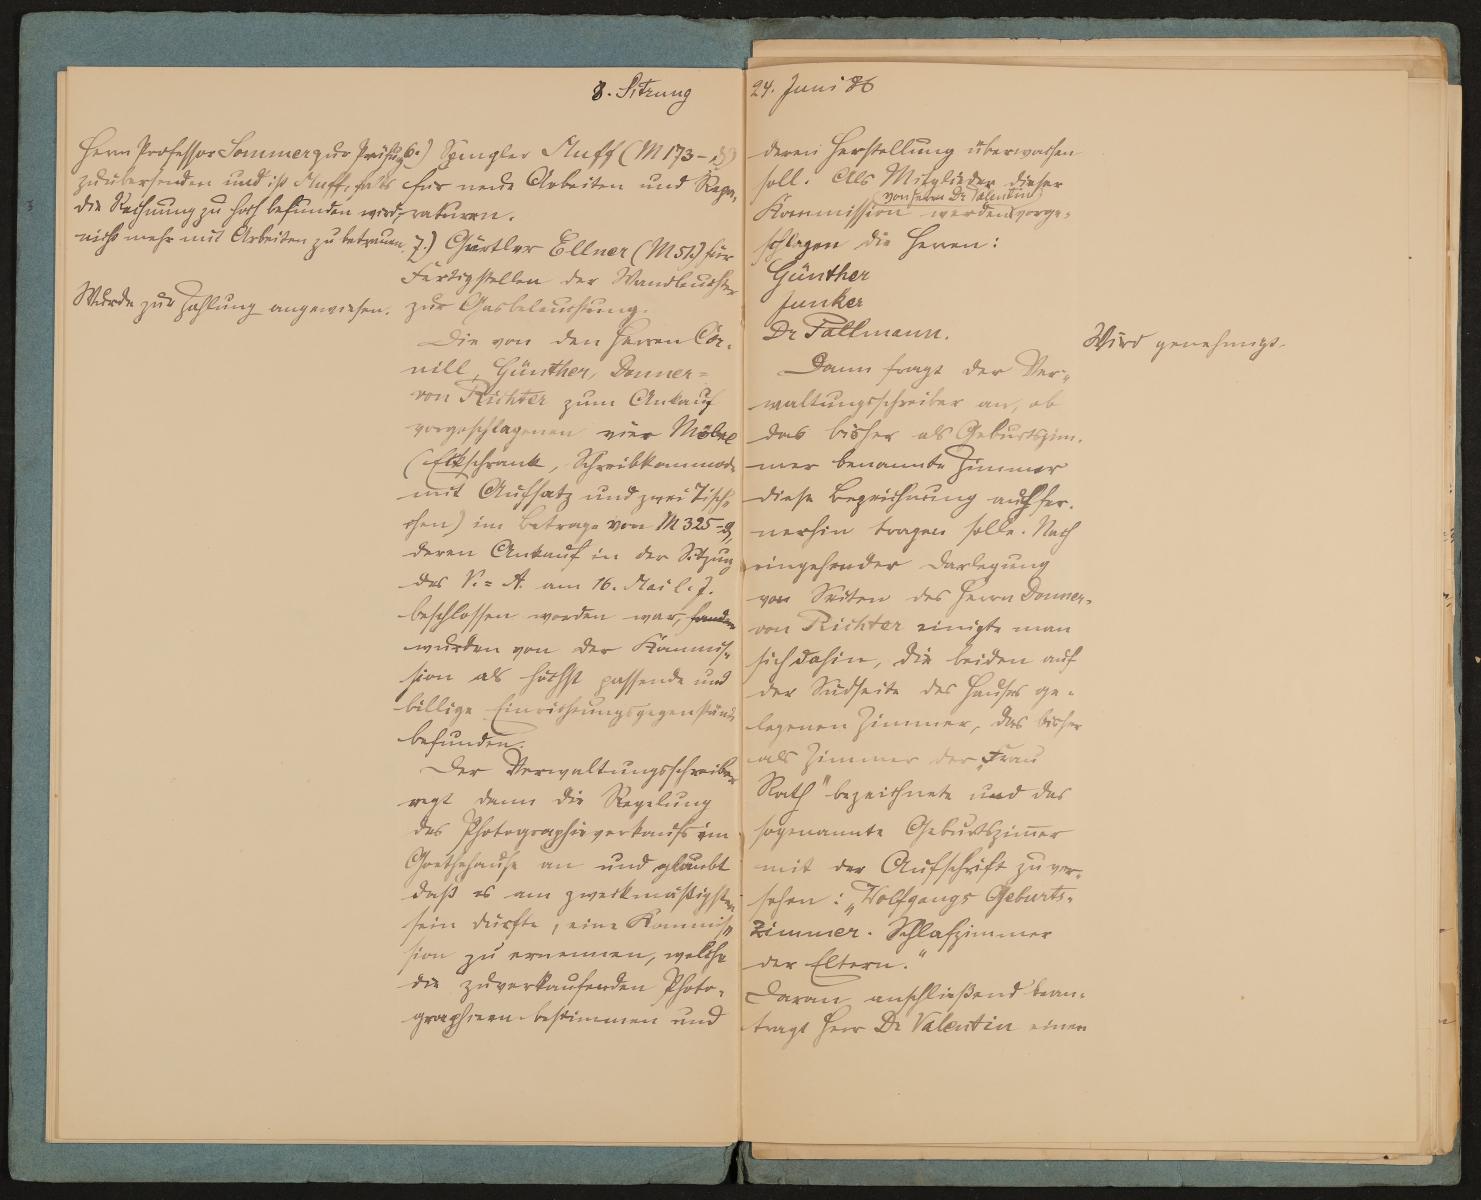 8. Sitzung
Herrn Professor Sommer zur Prüfung
zu übersenden und ist Muff, falls
die Rechnung zu hoch befunden wird,
nicht mehr mit Arbeiten zu betrauen.
Wurde zur Zahlung angewiesen.
6.) Spengler Muff (M 173 –
für neue Arbeiten und Repa-
raturen.
7.) Gürtler Ellner (M 51.) für
Fertigstellen der Wandleuchter
zur Gasbeleuchtung.
Die von den Herren Cor-
nill, Günther, Donner-
von Richter zum Ankauf
vorgeschlagenen vier Möbel
(Eckschrank, Schreibkommode
mit Aufsatz und zwei Tisch-
chen) im Betrage von M 325 –
deren Ankauf in der Sitzung
des V.-A. am 16. Mai l. J.
beschlossen worden war, fanden
wurden von der Kommis-
sion als höchst passende und
billige Einrichtungsgegenstände
befunden.
Der Verwaltungsschreiber
regt dann die Regelung
des Photographieverkaufs im
Goethehause an und glaubt
daß es am zweckmäßigsten
sein dürfte, eine Kommis-
sion zu ernennen, welche
die zuverkaufenden Photo-
graphieen bestimmen und
24. Juni 86
deren Herstellung überwachen
soll. Als Mitglieder dieser
von Herrn Dr Valentin
Kommission werden vorge-
schlagen die Herren:
Günther
Junker
Dr Pallmann.
Wird genehmigt.
Dann fragt der Ver-
waltungsschreiber an, ob
das bisher als Geburtszim-
mer benannte Zimmer
diese Bezeichnung auch fer-
nerhin tragen solle. Nach
eingehender Darlegung
von Seiten des Herrn Donner-
von Richter einigte man
sich dahin, die beiden auf
der Südseite des Hauses ge-
legenen Zimmer, das bisher
als Zimmer der „Frau
Rath" bezeichnete und das
sogenannte Geburtszimmer
mit der Aufschrift zu ver-
sehen: „Wolfgangs Geburts-
zimmer. Schlafzimmer
der Eltern."
Daran anschließend bean-
tragt Herr Dr Valentin einen